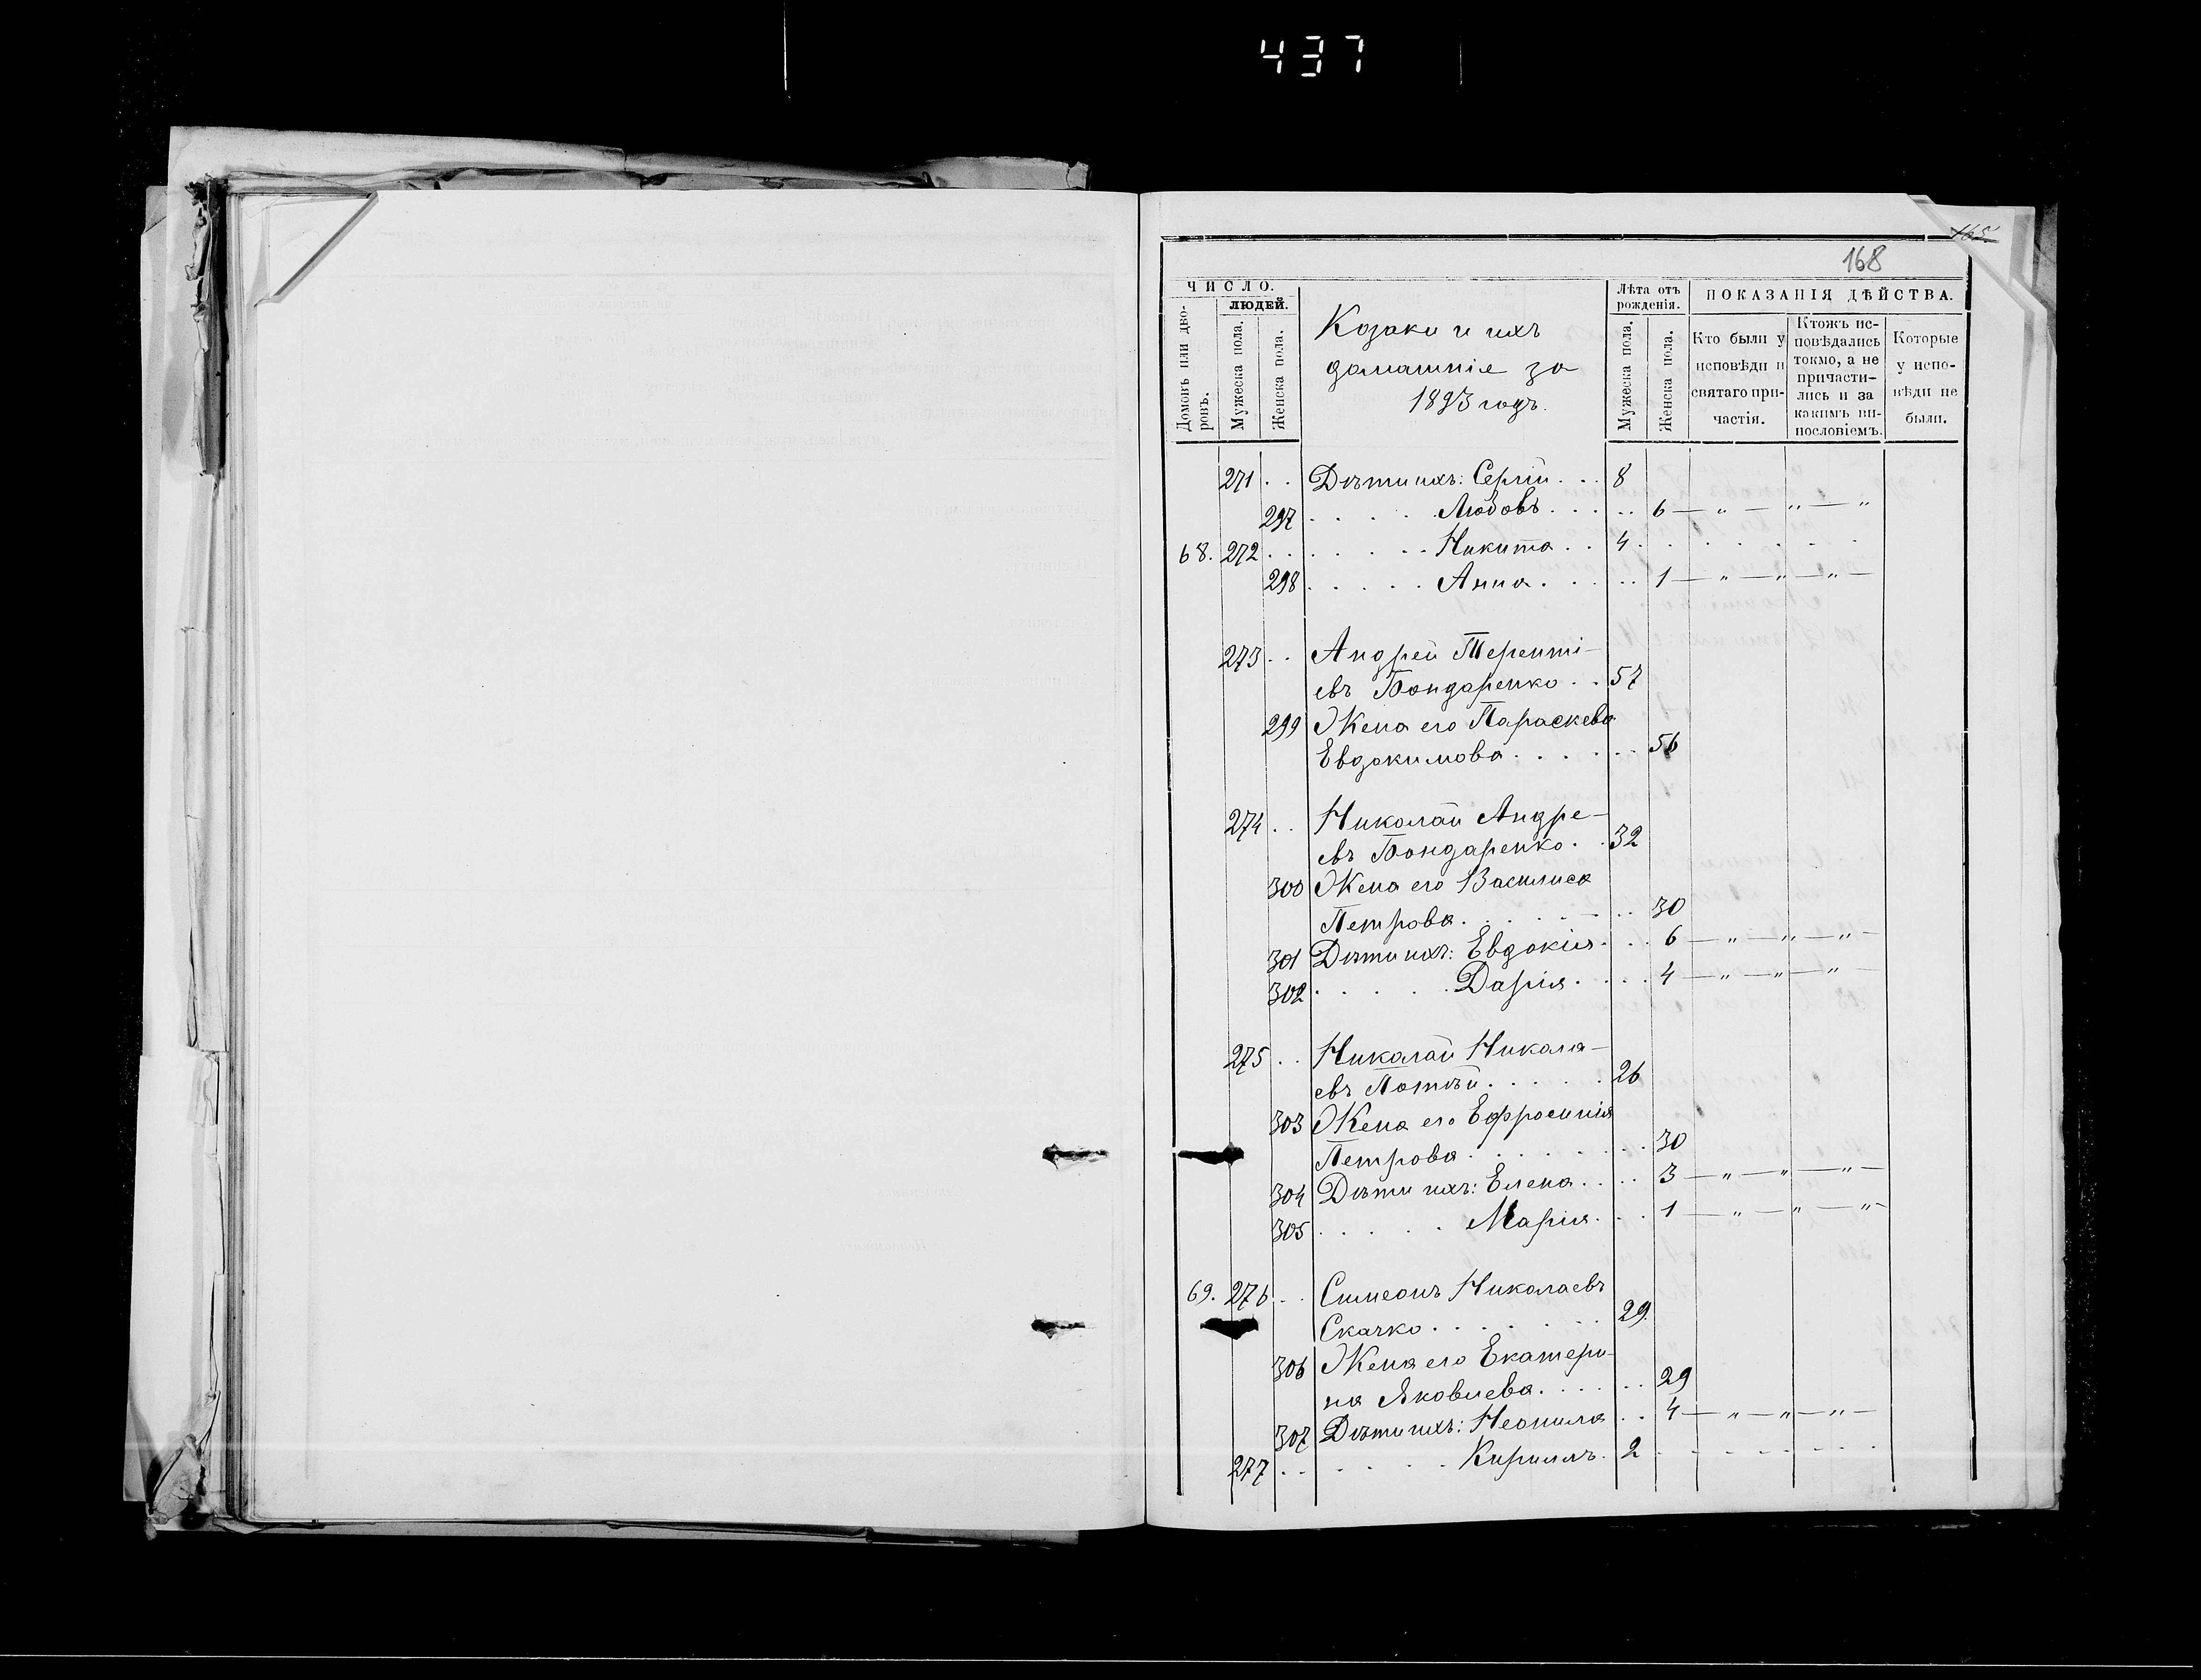 437
165
168
ЧИСЛО.
ЛЮДЕЙ.
Домовъ или дво-
ровъ.
Мужеска пола.
Женска пола.
Козаки и ихъ
домашніе за
1893 годъ.
Лѣта отъ
рожденія.
Мужеска пола.
Женска пола.
ПОКАЗАНІЯ ДѢЙСТВА.
Кто были у
исповѣди и
святаго при-
частія.
Ктожъ ис-
повѣдались
токмо, а не
причасти-
лись и за
какимъ ви-
нословіемъ.
Которые
у испо-
вѣди не
были.
271 . . Дѣти ихъ: Сергій . . . 8
297 . . . . . Любовь . . . . . 6 — „ — „ — „
68. 272 . . . . . . . Никита . . 4 . . . . . . .
298 . . . . . Анна . . . . . 1 — „ — „ — „ —
273 . . Андрей Теренті-
евъ Бондаренко . . 57
299 Жена его Параскева
Евдокимова . . . . . . 56
274 . . Николай Андре-
евъ Бондаренко . . 32
300 Жена его Василиса
Петрова . . . . . . . 30
301 Дѣти ихъ: Евдокія . . . 6 — „ — „ — „ —
302 . . . . . Дарія . . . . 4 — „ — „ — „ —
275 . . Николай Никола-
евъ Потѣй . . . . . 26
303 Жена его Ефросинія
Петрова . . . . . . . . 30
304 Дѣти ихъ: Елена . . . . 3 — „ — „ — „ —
305 . . . . . Марія . . . 1 — „ — „ — „ —
69. 276 . . Симеонъ Николаевъ
Скачко . . . . . . . 29.
306 Жена его Екатери-
на Яковлева . . . . . . 29
307 Дѣти ихъ: Неонила . . 4 — „ — „ — „ —
277 . . . . . . . Кириллъ . 2 . . . . . . . .